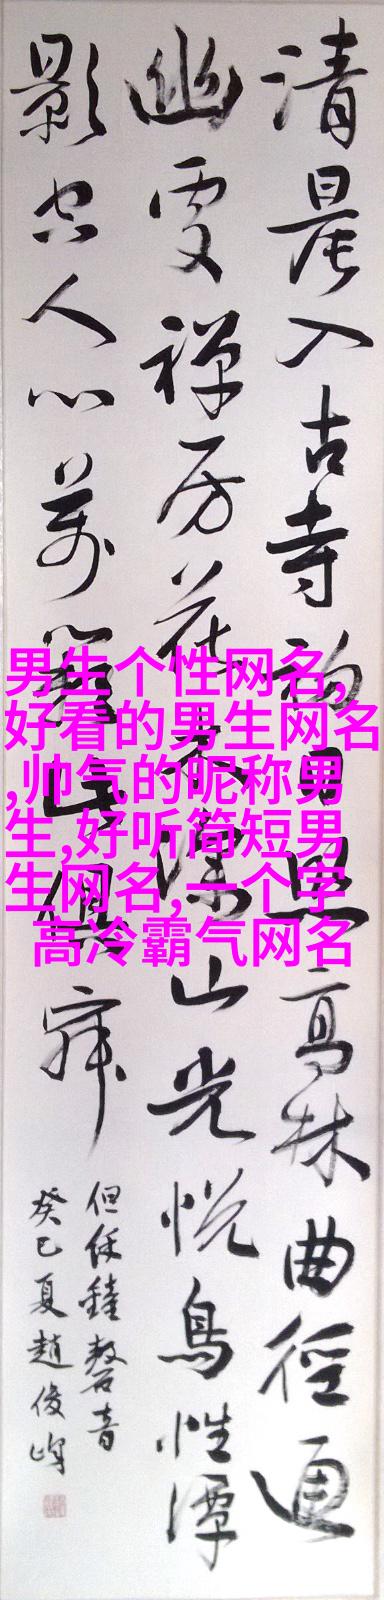 清晨入古寺初日照高林曲徑通
幽處禪房花木深山光悅鳥性潭
影空人心萬籟此俱寂
但餘鐘磬音
癸巳夏趙俊峰
男生个性网名,
好看的男生网名
,帅气的昵称男
生,好听简短男
生网名,一个字
高冷霸气网名